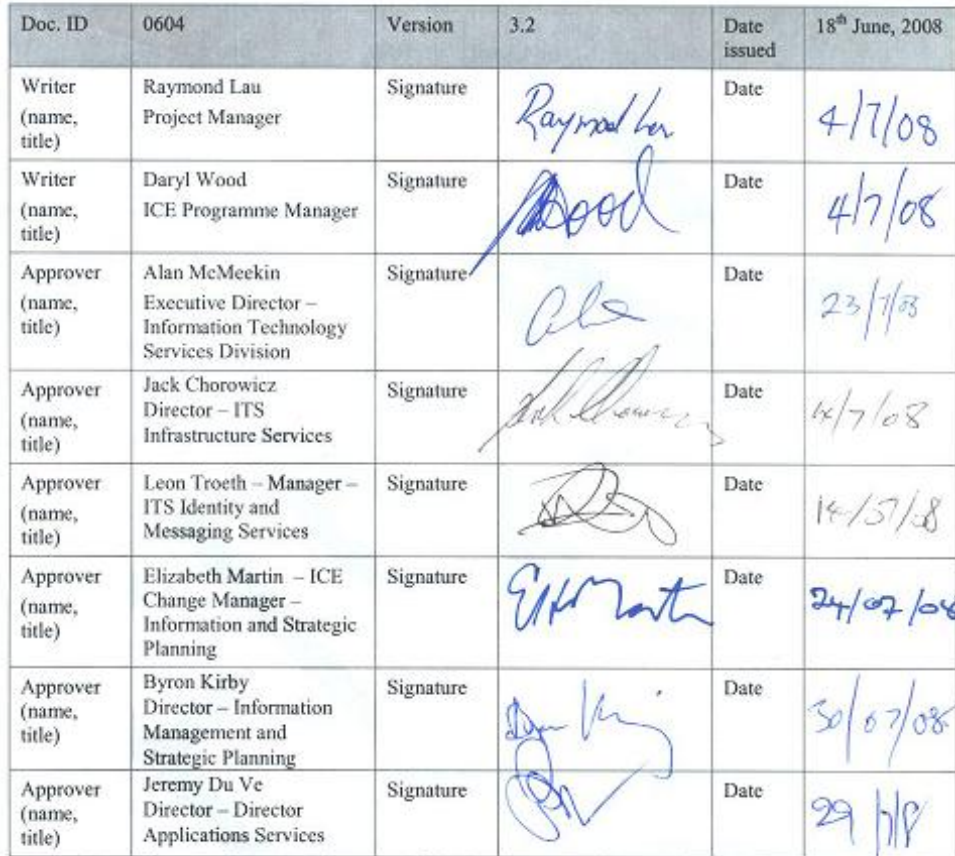 Doc. ID 0604 Version 3.2 Date issued 18th June, 2008
Writer (name, title) Raymond Lau Project Manager Signature Raymond Lau Date 4/7/08
Writer (name, title) Daryl Wood ICE Programme Manager Signature Wood Date 4/7/08
Approver (name, title) Alan McMeekin Executive Director – Information Technology Services Division Signature Date 23/7/08
Approver (name, title) Jack Chorowicz Director – ITS Infrastructure Services Signature Date
Approver (name, title) Leon Troeth – Manager – ITS Identity and Messaging Services Signature Date 14/07/08
Approver (name, title) Elizabeth Martin – ICE Change Manager – Information and Strategic Planning Signature Date 24/07/08
Approver (name, title) Byron Kirby Director – Information Management and Strategic Planning Signature Date 30/07/08
Approver (name, title) Jeremy Du Ve Director – Director Applications Services Signature Date 29/7/8